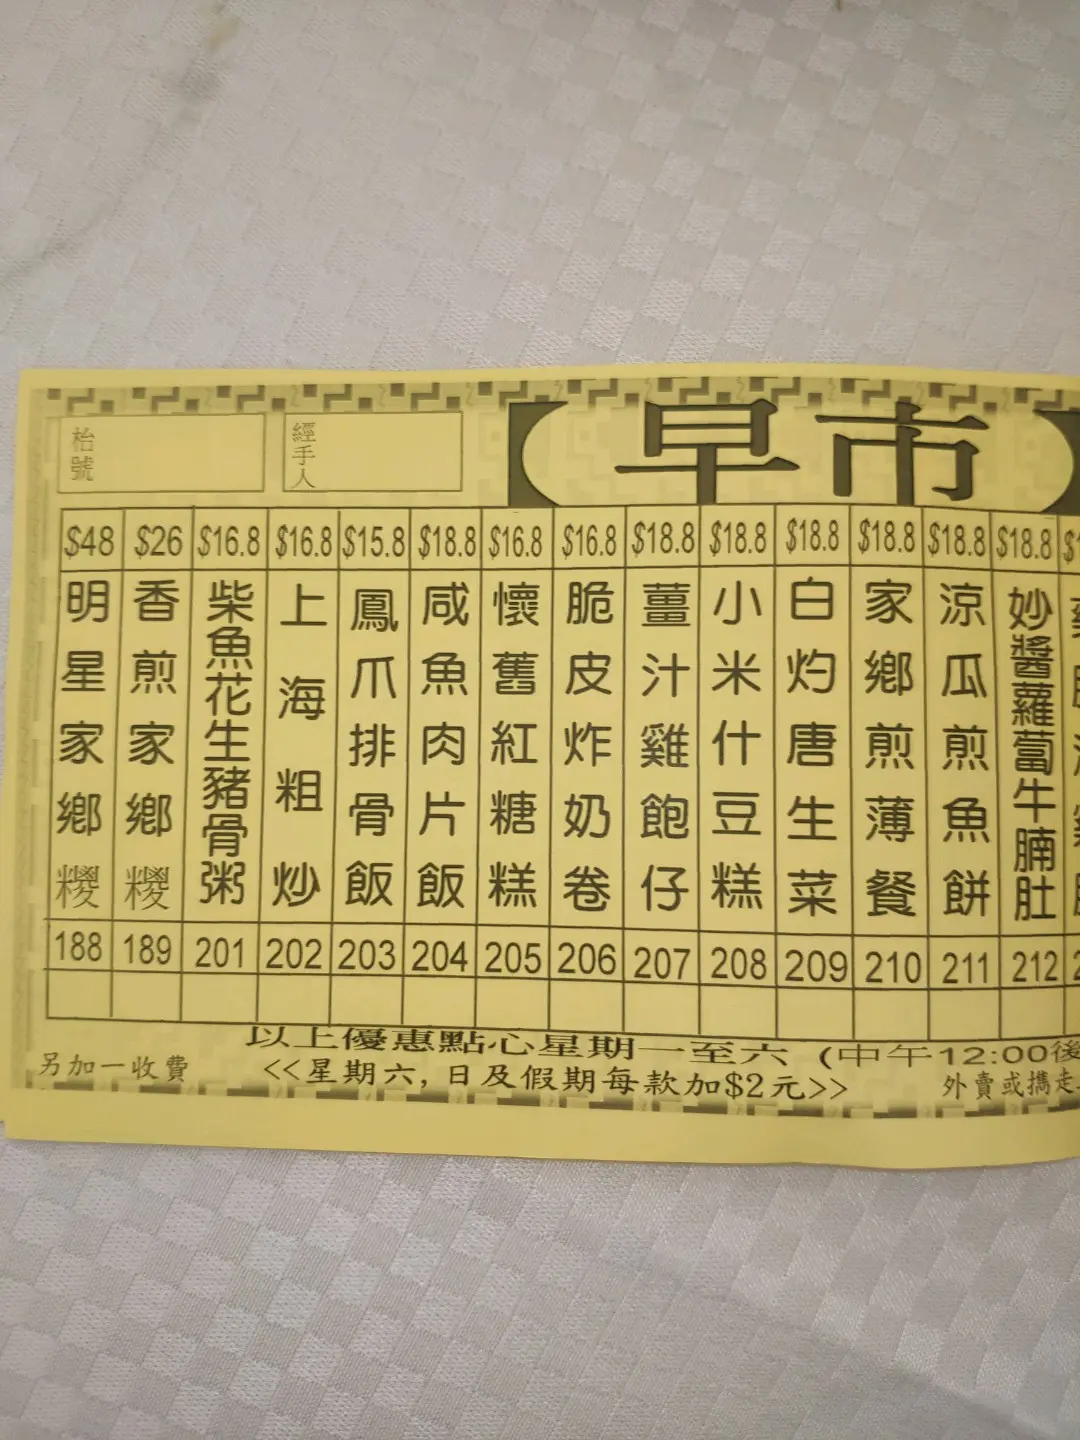 枱號
經手人
【早市
$48 $26 $16.8 $16.8 $15.8 $18.8 $16.8 $16.8 $18.8 $18.8 $18.8 $18.8 $18.8 $18.8
明星家鄉糉
香煎家鄉糉
柴魚花生豬骨粥
上海粗炒
鳳爪排骨飯
咸魚肉片飯
懷舊紅糖糕
脆皮炸奶卷
薑汁雞飽仔
小米什豆糕
白灼唐生菜
家鄉煎薄餐
涼瓜煎魚餅
妙醬蘿蔔牛腩肚
188 189 201 202 203 204 205 206 207 208 209 210 211 212
以上優惠點心星期一至六 (中午12:00後
另加一收費
<<星期六,日及假期每款加$2元>>
外賣或攜走